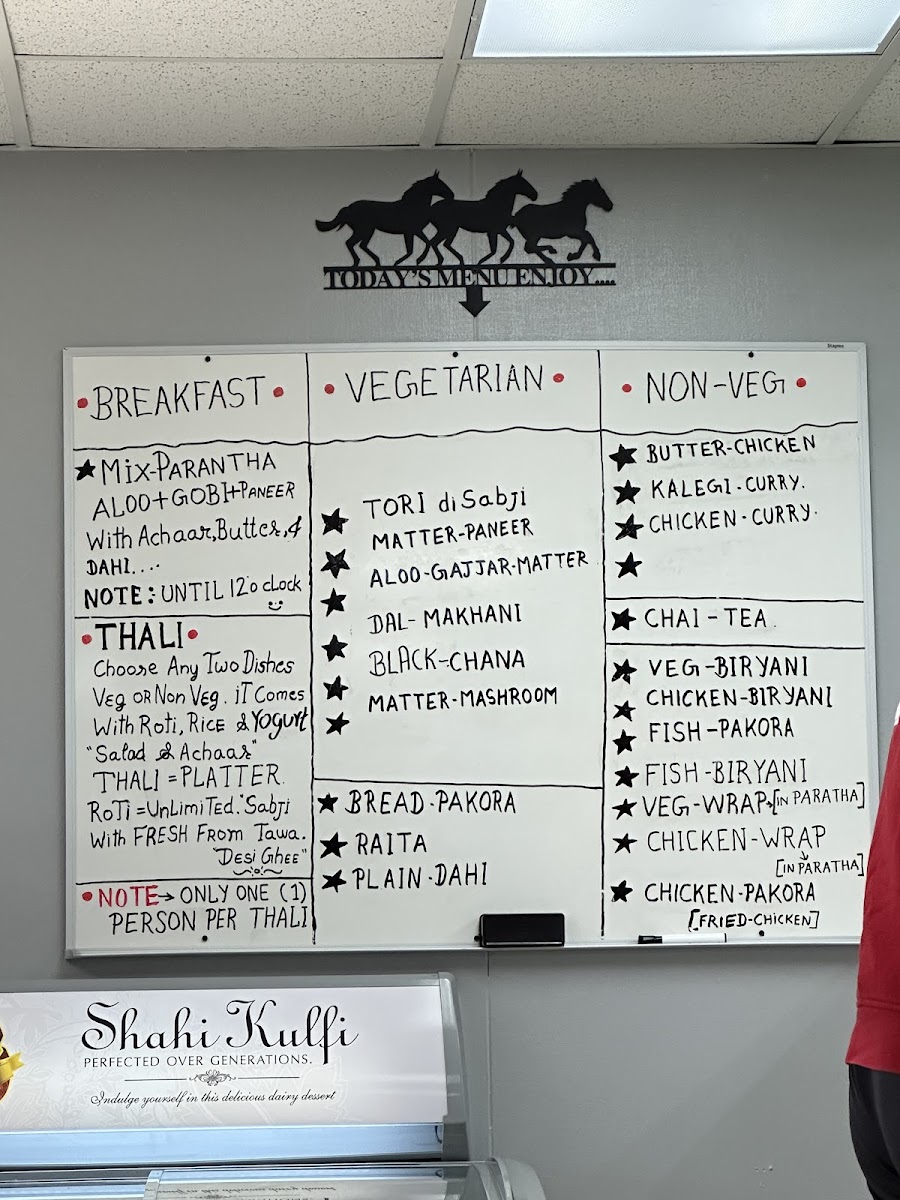 TODAY'S MENU ENJOY....
Staples
BREAKFAST
MIX-PARANTHA
ALOO+GOBI+PANEER
With Achaar, Butter, &
DAHI....
NOTE: UNTIL 12'o cLock
THALI
Choose Any Two Dishes
Veg OR Non Veg. iT Comes
With Roti, Rice & Yogurt
"Salad & Achaar"
THALI = PLATTER.
RoTi = UnLimiTed. "Sabji
With FRESH From Tawa.
"Desi Ghee"
NOTE → ONLY ONE (1)
PERSON PER THALI
VEGETARIAN
TORI di Sabji
MATTER-PANEER
ALOO-GAJJAR-MATTER
DAL-MAKHANI
BLACK-CHANA
MATTER-MASHROOM
BREAD-PAKORA
RAITA
PLAIN-DAHI
NON-VEG
BUTTER-CHICKEN
KALEGI-CURRY.
CHICKEN-CURRY.
CHAI-TEA.
VEG-BIRYANI
CHICKEN-BIRYANI
FISH-PAKORA
FISH-BIRYANI
VEG-WRAP→[IN PARATHA]
CHICKEN-WRAP
[IN PARATHA]
CHICKEN-PAKORA
[FRIED-CHICKEN]
Shahi Kulfi
PERFECTED OVER GENERATIONS.
Indulge yourself in this delicious dairy dessert